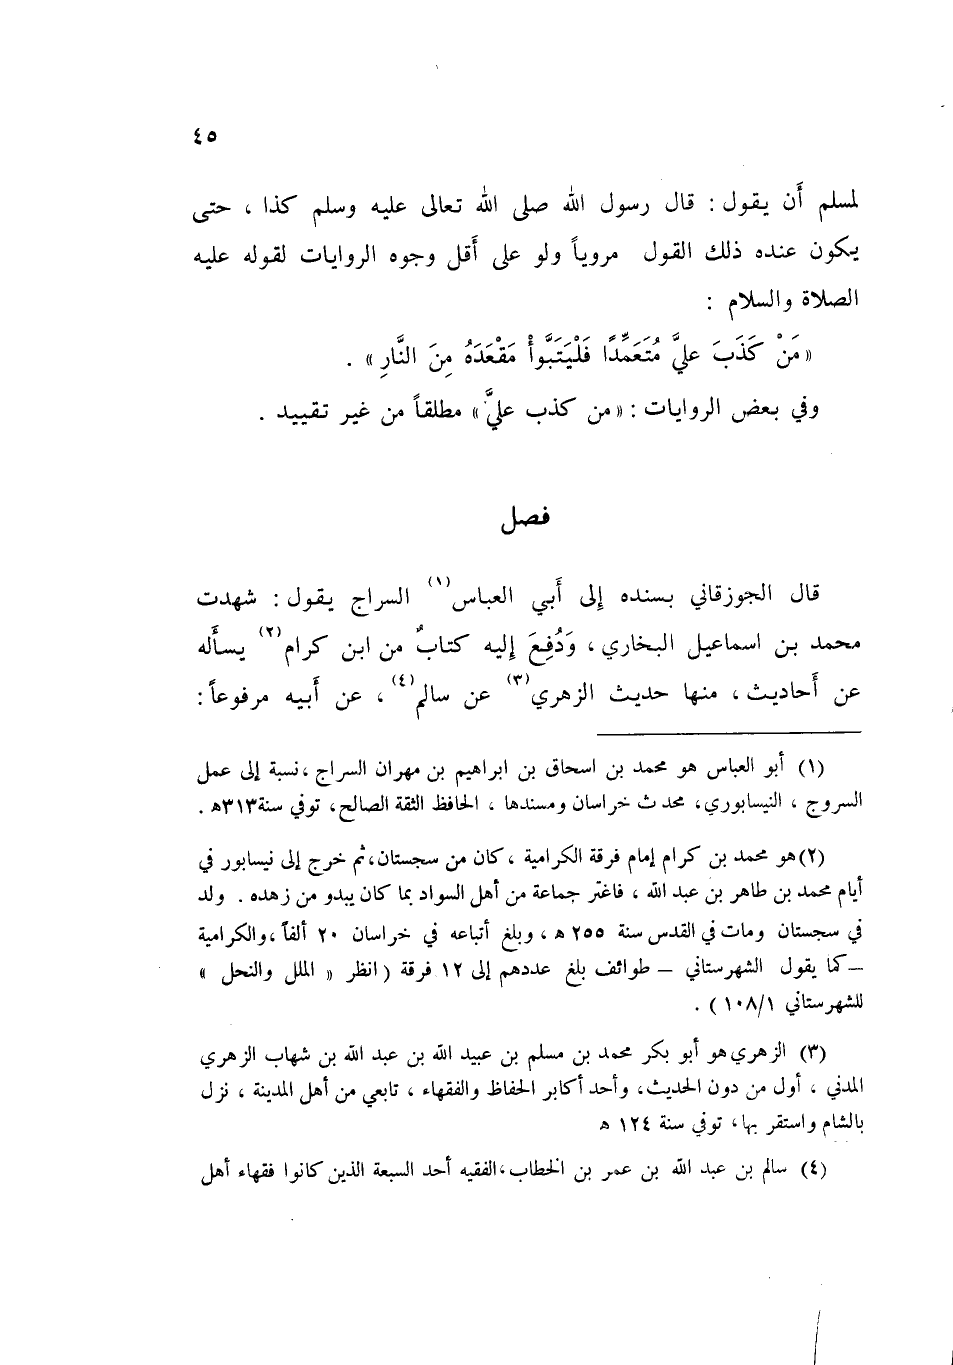 ٤٥
لمسلم أَن يقول : قال رسول الله صلى الله تعالى عليه وسلم كذا ، حتى
يكون عنده ذلك القول مروياً ولو على أَقل وجوه الروايات لقوله عليه
الصلاة والسلام :
« مَنْ كَذَبَ عليَّ مُتَعَمِّدًا فَلْيَتَبَّوأْ مَقْعَدَهُ مِنَ النَّارِ » .
وفي بعض الروايات : « من كذب عليَّ » مطلقاً من غير تقييد .
فصل
قال الجوزقاني بسنده إلى أَبي العباس(١) السراج يقول : شهدت
محمد بن اسماعيل البخاري ، وَدُفِعَ إليه كتابٌ من ابن كرام(٢) يسأَله
عن أَحاديث ، منها حديث الزهري(٣) عن سالم(٤) ، عن أَبيه مرفوعاً :
(١) أبو العباس هو محمد بن اسحاق بن ابراهيم بن مهران السراج ، نسبة إلى عمل
السروج ، النيسابوري، محدث خراسان ومسندها ، الحافظ الثقة الصالح، توفي سنة ٣١٣ هـ .
(٢) هو محمد بن كرام إمام فرقة الكرامية ، كان من سجستان، ثم خرج إلى نيسابور في
أيام محمد بن طاهر بن عبد الله ، فاغتر جماعة من أهل السواد بما كان يبدو من زهده . ولد
في سجستان ومات في القدس سنة ٢٥٥ هـ ، وبلغ أتباعه في خراسان ٢٠ ألفاً ، والكرامية
– كما يقول الشهرستاني – طوائف بلغ عددهم إلى ١٢ فرقة ( انظر « الملل والنحل »
للشهرستاني ١٠٨/١ ) .
(٣) الزهري هو أبو بكر محمد بن مسلم بن عبيد الله بن عبد الله بن شهاب الزهري
المدني ، أول من دون الحديث، وأحد أكابر الحفاظ والفقهاء ، تابعي من أهل المدينة ، نزل
بالشام واستقر بها، توفي سنة ١٢٤ هـ
(٤) سالم بن عبد الله بن عمر بن الخطاب، الفقيه أحد السبعة الذين كانوا فقهاء أهل